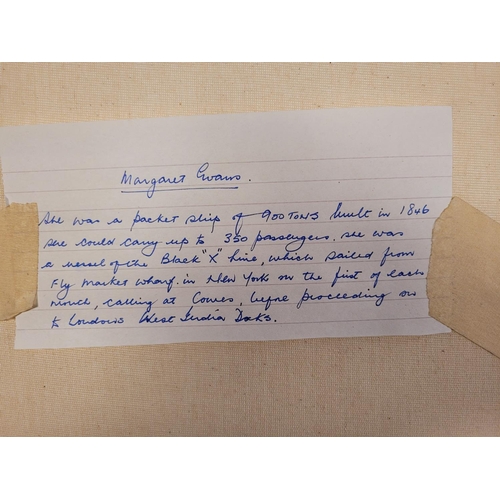 Margaret Evans.
She was a packet ship of 900 TONS built in 1846
she could carry up to 350 passengers. she was
a vessel of the Black "X" line, which sailed from
Fly Market wharf. in New York on the first of each
month, calling at Cowes, before proceeding on
to London's West India Docks.